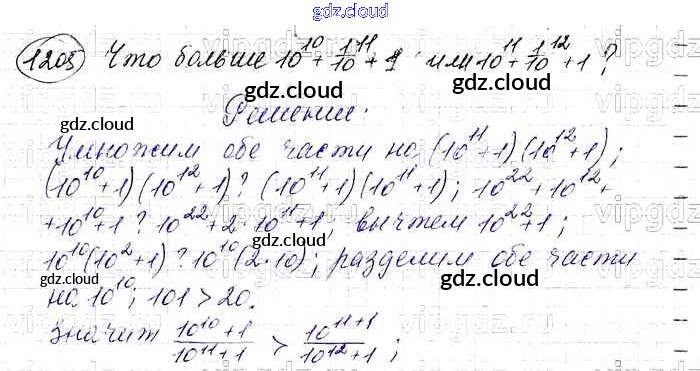 gdz.cloud
1205 Что больше 10^10 + 1/10^11 + 1 или 10^11 + 1/10^12 + 1 ?
Решение:
Умножим обе части на (10^11+1)(10^12+1);
(10^10+1)(10^12+1) ? (10^11+1)(10^11+1); 10^22+10^12+
+10^10+1 ? 10^22+2·10^11+1, вычтем 10^22+1;
10^10(10^2+1) ? 10^10(2·10); разделим обе части
на 10^10; 101 > 20.
Значит (10^10+1)/(10^11+1) > (10^11+1)/(10^12+1);